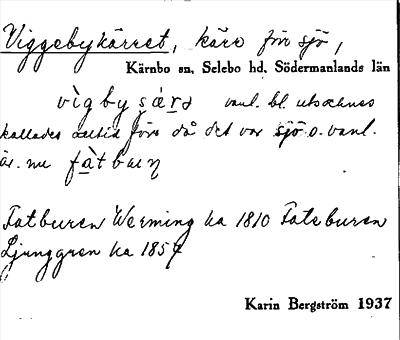 Viggebykärret, kärr förr sjö,
Kärnbo sn, Selebo hd, Södermanlands län
vìgbyṣæ̀ṛə vanl. bl. utsocknes
kallades alltid förr då det var sjö o. vanl.
är. nu fàtbuıη
Fatburen Werming ka 1810 Fateburen
Ljunggren ka 1857
Karin Bergström 1937